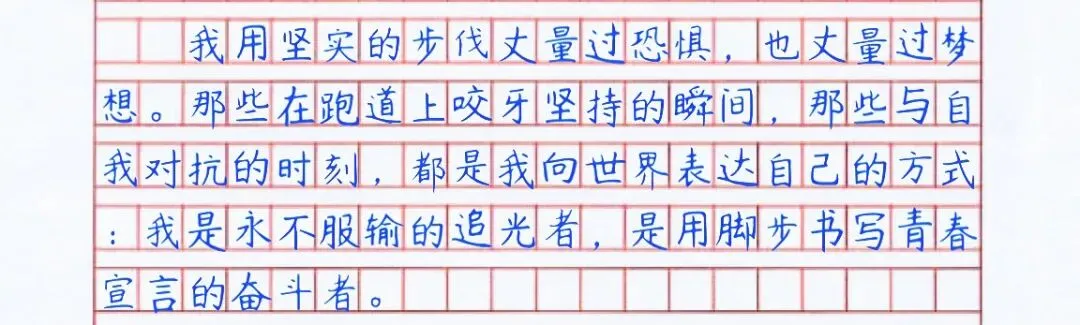 我用坚实的步伐丈量过恐惧，也丈量过梦
想。那些在跑道上咬牙坚持的瞬间，那些与自
我对抗的时刻，都是我向世界表达自己的方式
：我是永不服输的追光者，是用脚步书写青春
宣言的奋斗者。